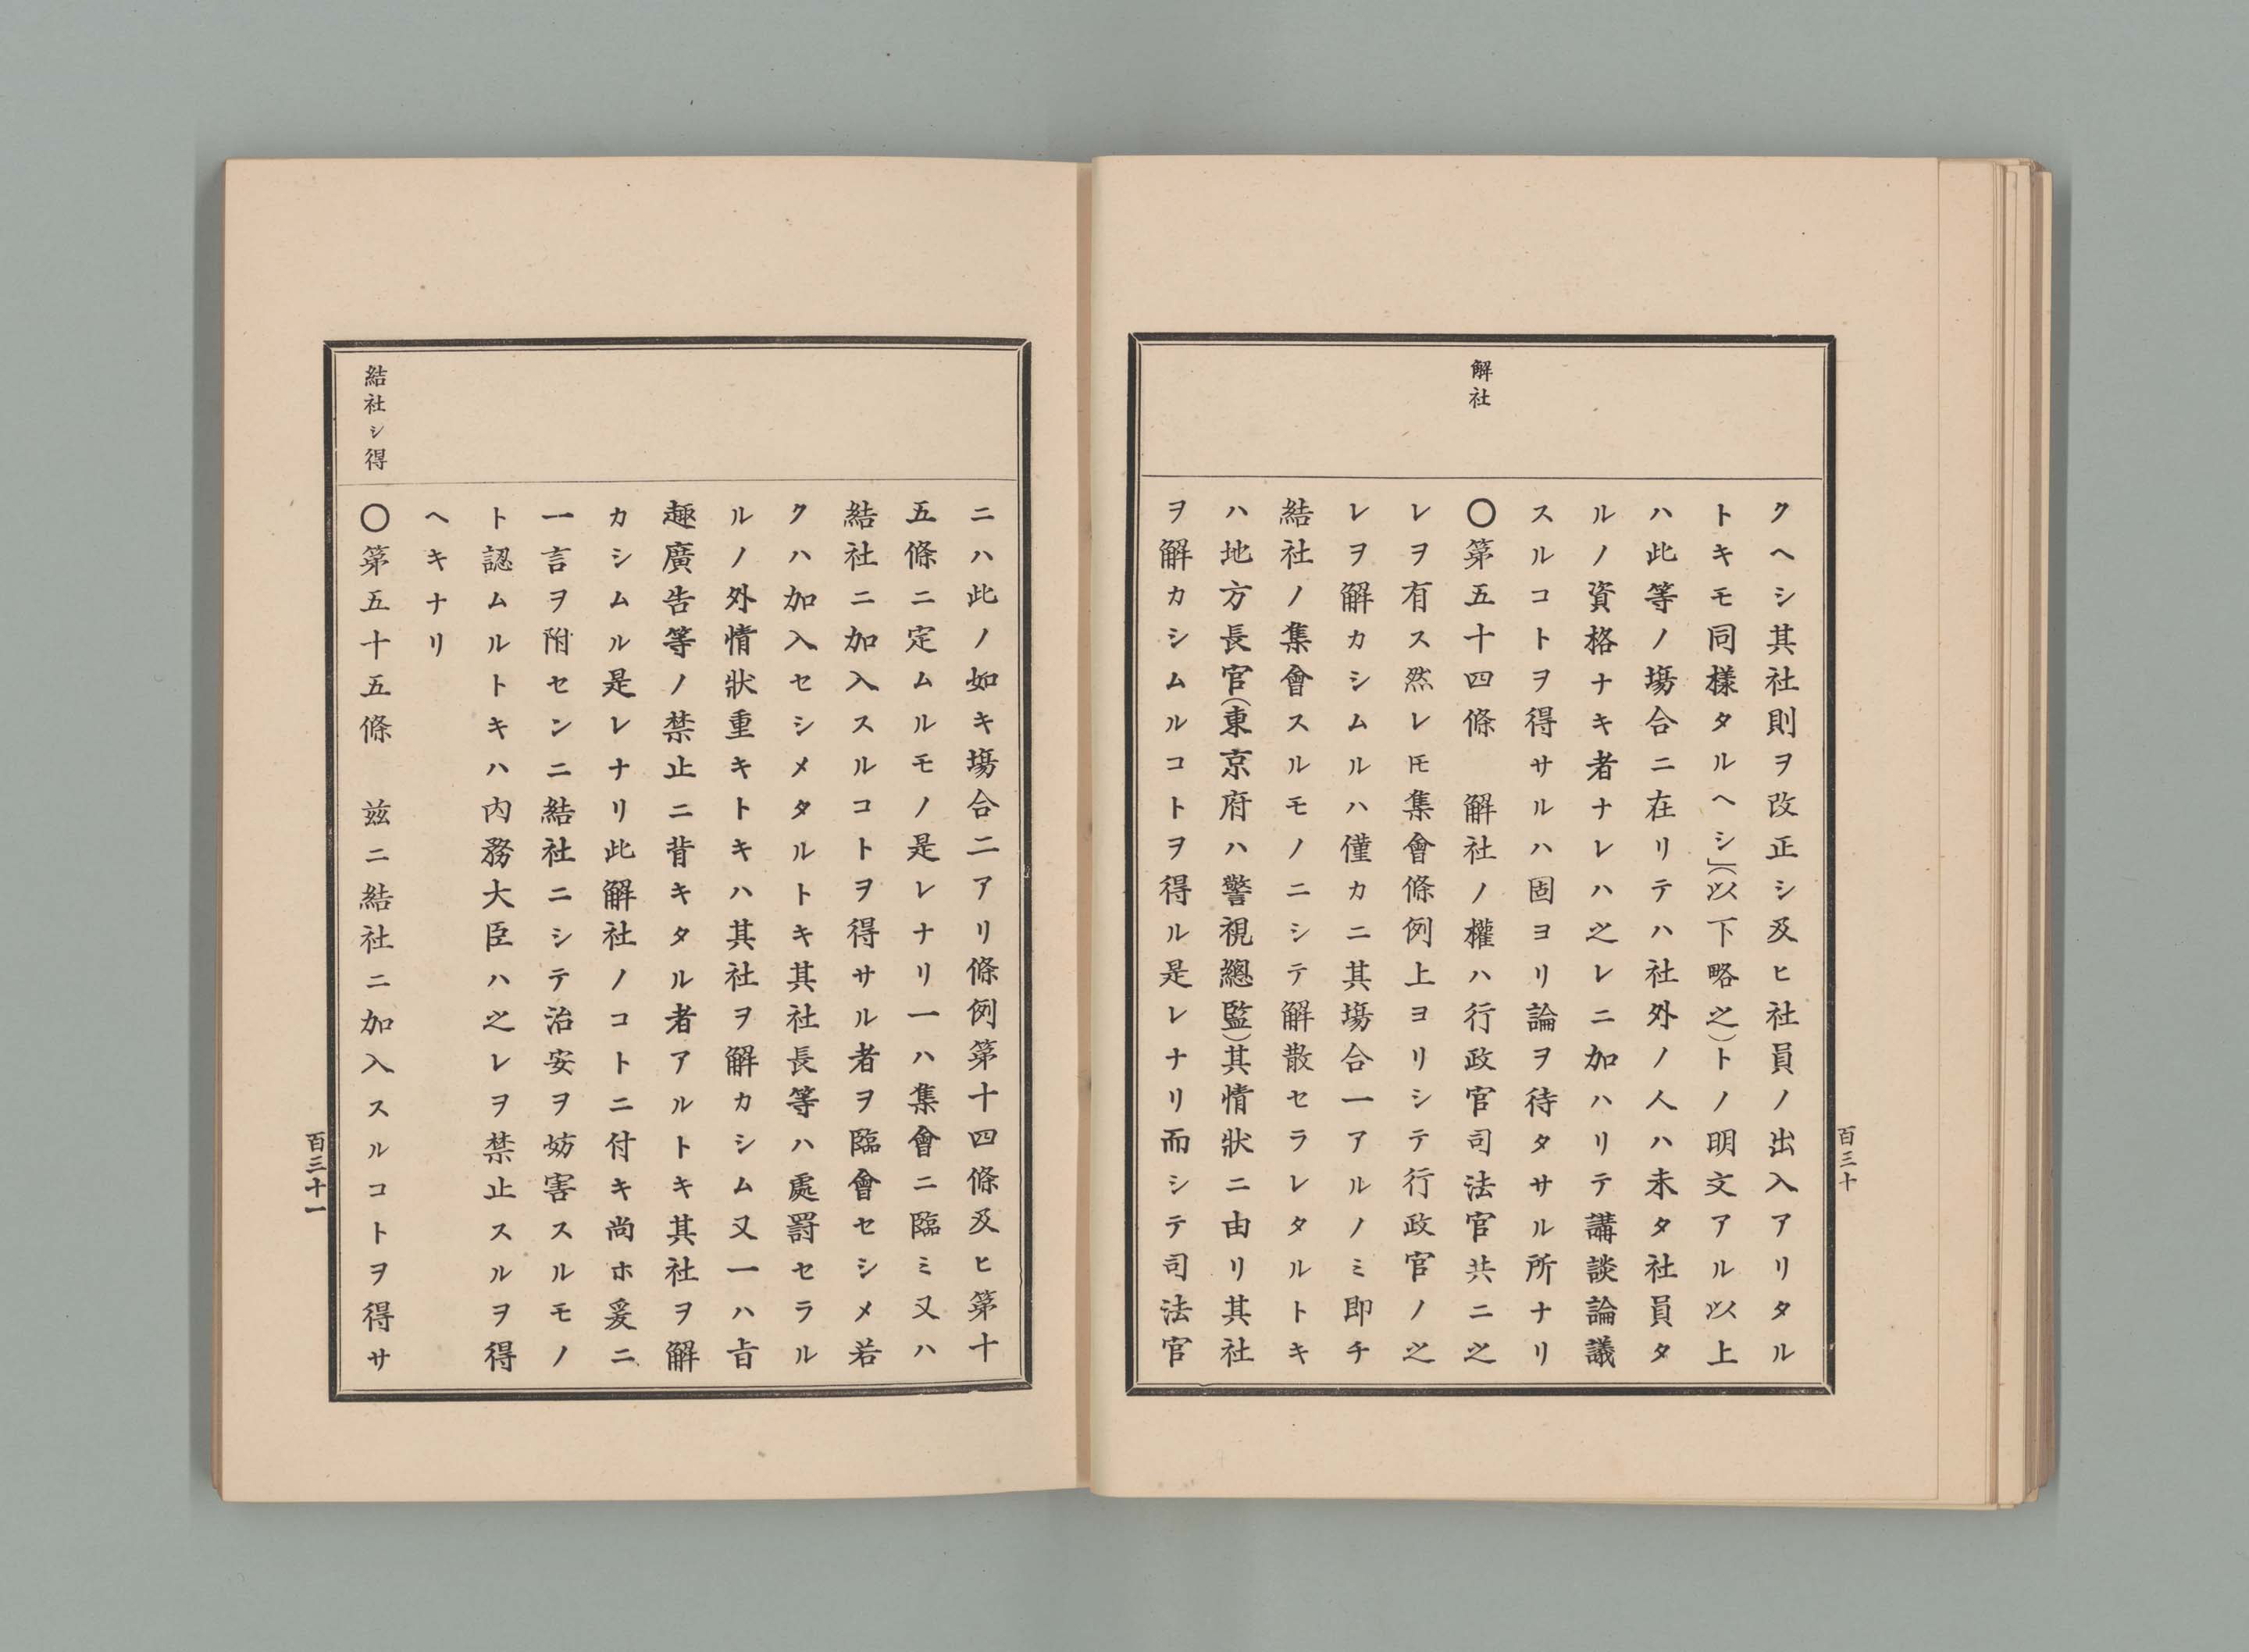 解社
クヘシ其社則ヲ改正シ及ヒ社員ノ出入アリタル
トキモ同樣タルヘシ」(以下略之)トノ明文アル以上
ハ此等ノ塲合ニ在リテハ社外ノ人ハ未タ社員タ
ルノ資格ナキ者ナレハ之レニ加ハリテ講談論議
スルコトヲ得サルハ固ヨリ論ヲ待タサル所ナリ
〇第五十四條　解社ノ權ハ行政官司法官共ニ之
レヲ有ス然レ𪜈集會條例上ヨリシテ行政官ノ之
レヲ解カシムルハ僅カニ其塲合一アルノミ即チ
結社ノ集會スルモノニシテ解散セラレタルトキ
ハ地方長官(東京府ハ警視總監)其情狀ニ由リ其社
ヲ解カシムルコトヲ得ル是レナリ而シテ司法官
百三十
結社シ得
ニハ此ノ如キ塲合二アリ條例第十四條及ヒ第十
五條ニ定ムルモノ是レナリ一ハ集會ニ臨ミ又ハ
結社ニ加入スルコトヲ得サル者ヲ臨會セシメ若
クハ加入セシメタルトキ其社長等ハ處罸セラル
ルノ外情狀重キトキハ其社ヲ解カシム又一ハ旨
趣廣告等ノ禁止ニ背キタル者アルトキ其社ヲ解
カシムル是レナリ此解社ノコトニ付キ尚ホ爰ニ
一言ヲ附センニ結社ニシテ治安ヲ妨害スルモノ
ト認ムルトキハ内務大臣ハ之レヲ禁止スルヲ得
ヘキナリ
〇第五十五條　玆ニ結社ニ加入スルコトヲ得サ
百三十一